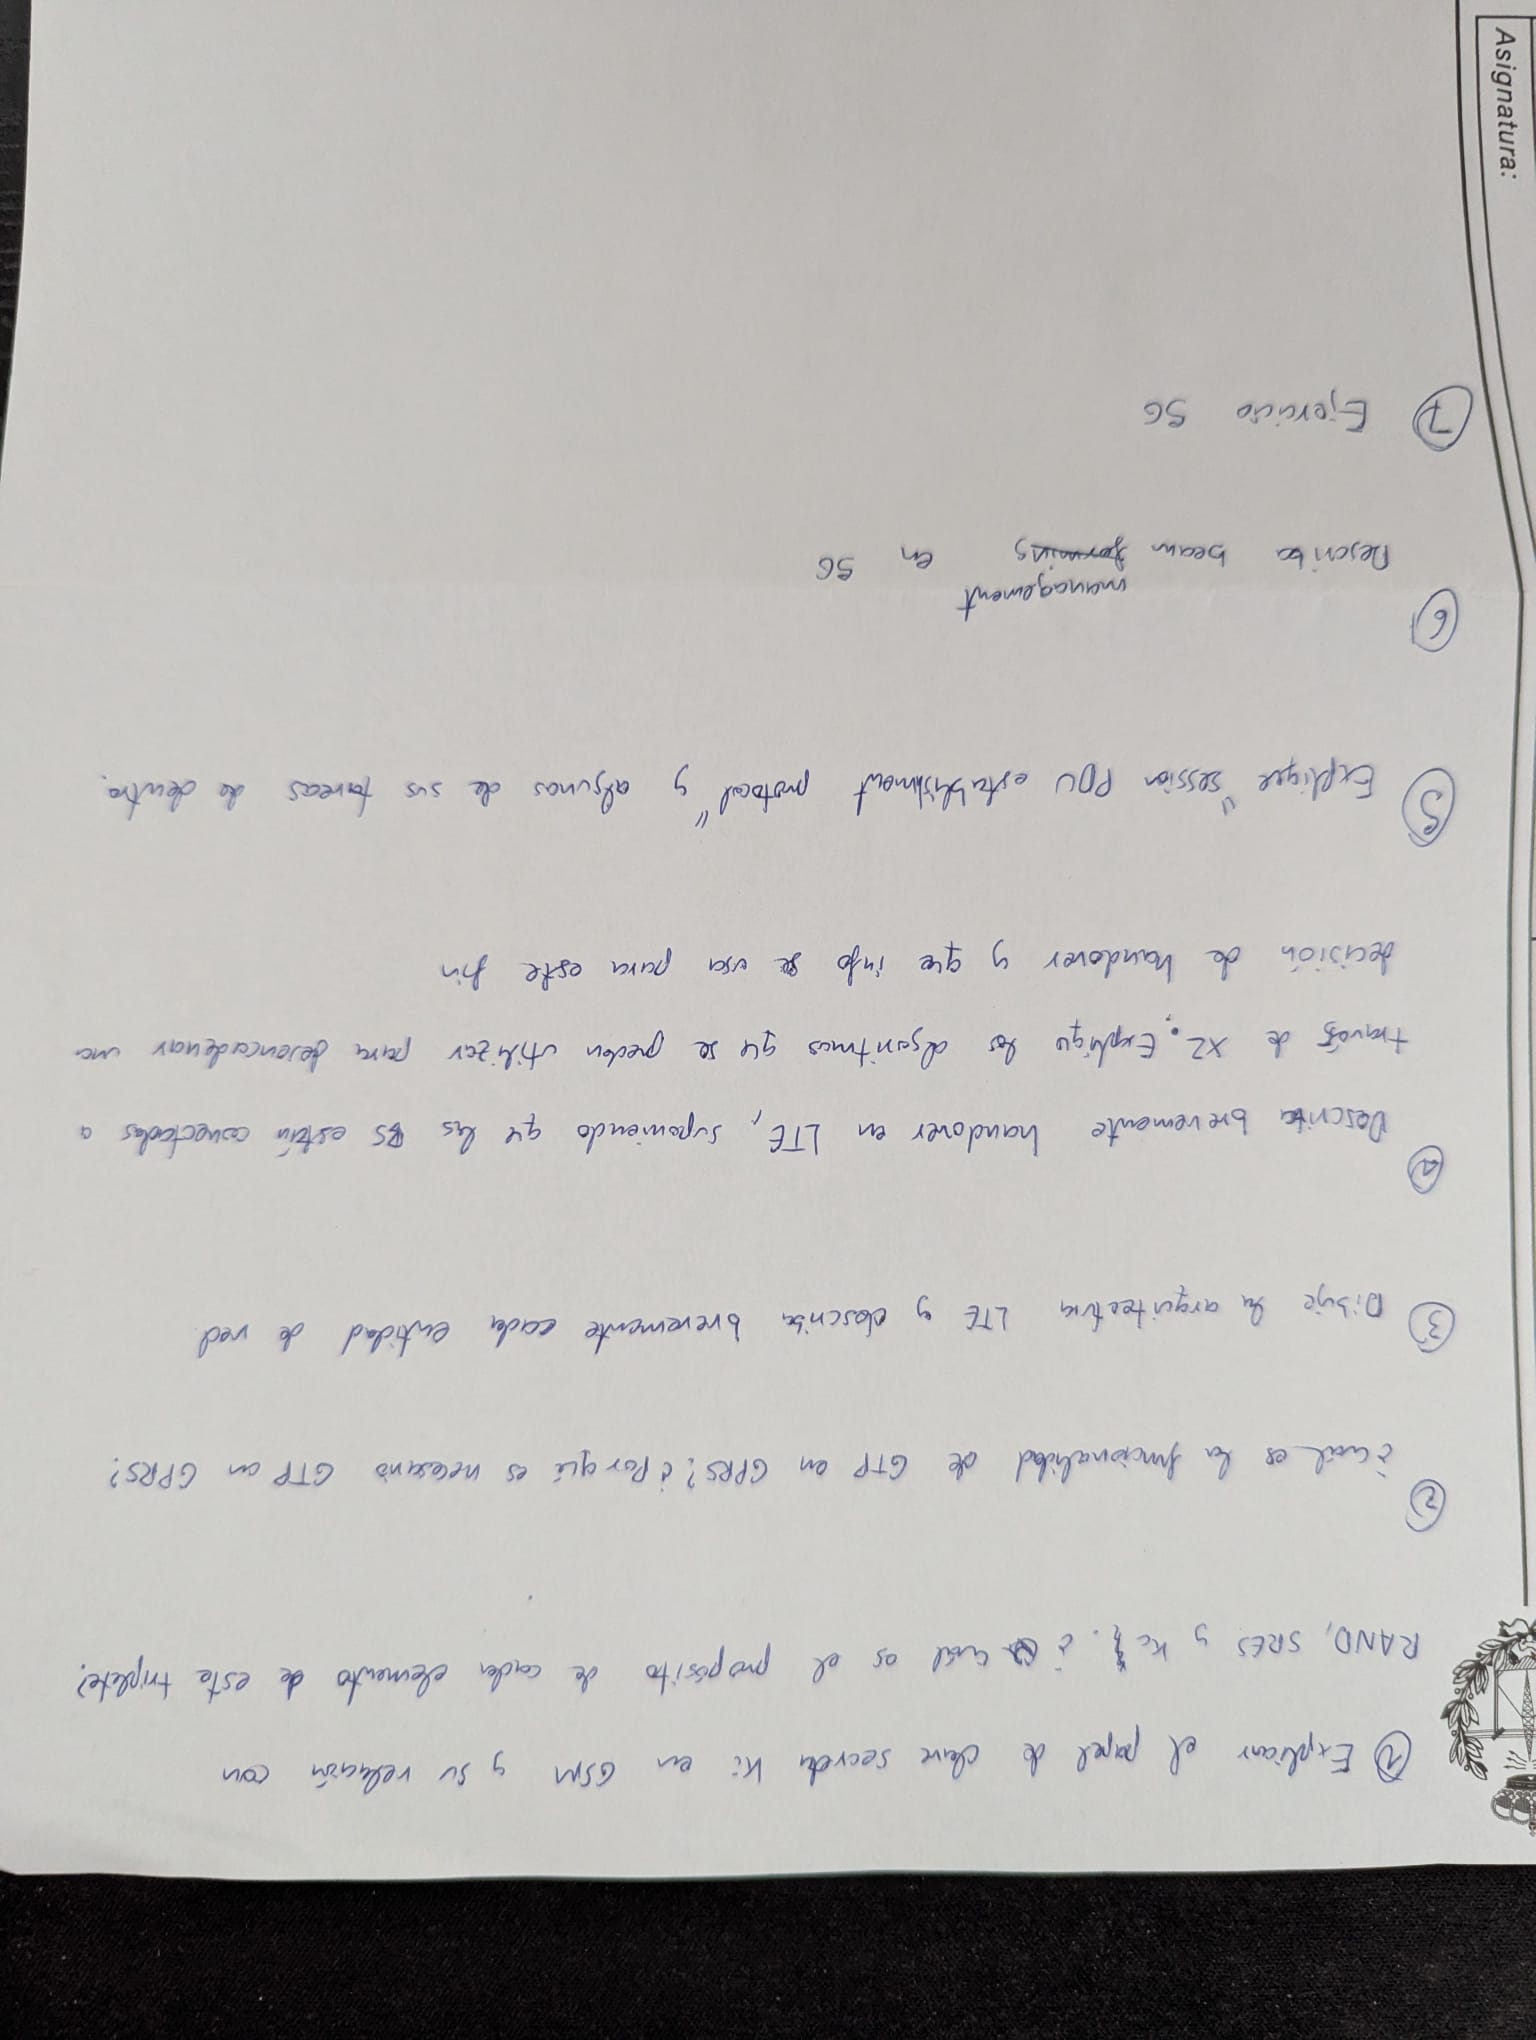 Asignatura:
① Explicar el papel de clave secreta Ki en GSM y su relación con
RAND, SRES y Kc. ¿Cuál es el propósito de cada elemento de este triplete?
②
¿Cuál es la funcionalidad de GTP en GPRS? ¿Por qué es necesario GTP en GPRS?
③ Dibuje la arquitectura LTE y describa brevemente cada entidad de red
④
Describa brevemente handover en LTE, suponiendo que las BS están conectadas a
través de X2. Explique los algoritmos que se pueden utilizar para desencadenar una
decisión de handover y que info se usa para este fin
⑤ Explique "session PDU establishment protocol" y algunas de sus tareas de dentro.
⑥
management
Describa beam forming en 5G
⑦ Ejercicio 5G